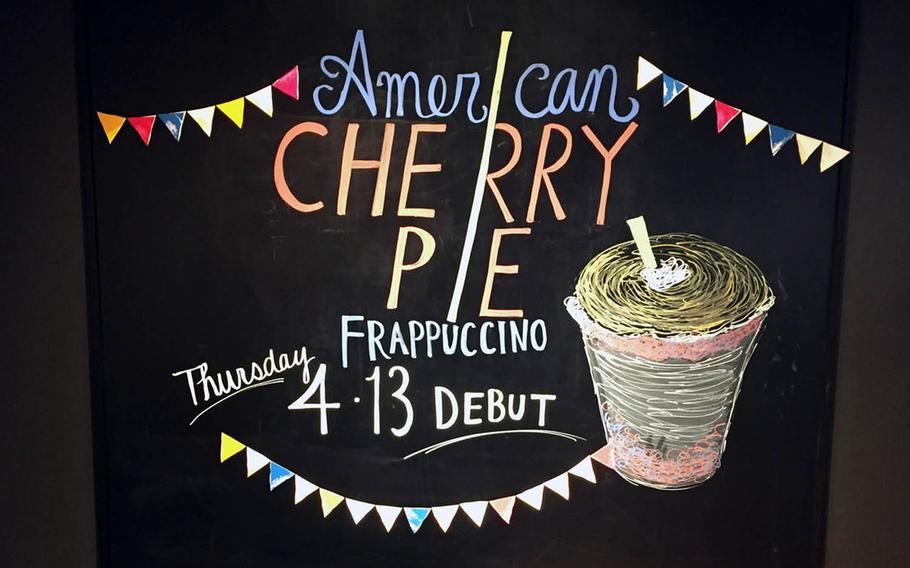 American
CHERRY
PIE
FRAPPUCCINO
Thursday
4·13 DEBUT